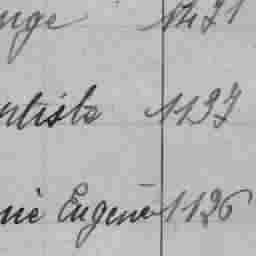 nge 1471
ntiste 1137
nie Eugène 1136